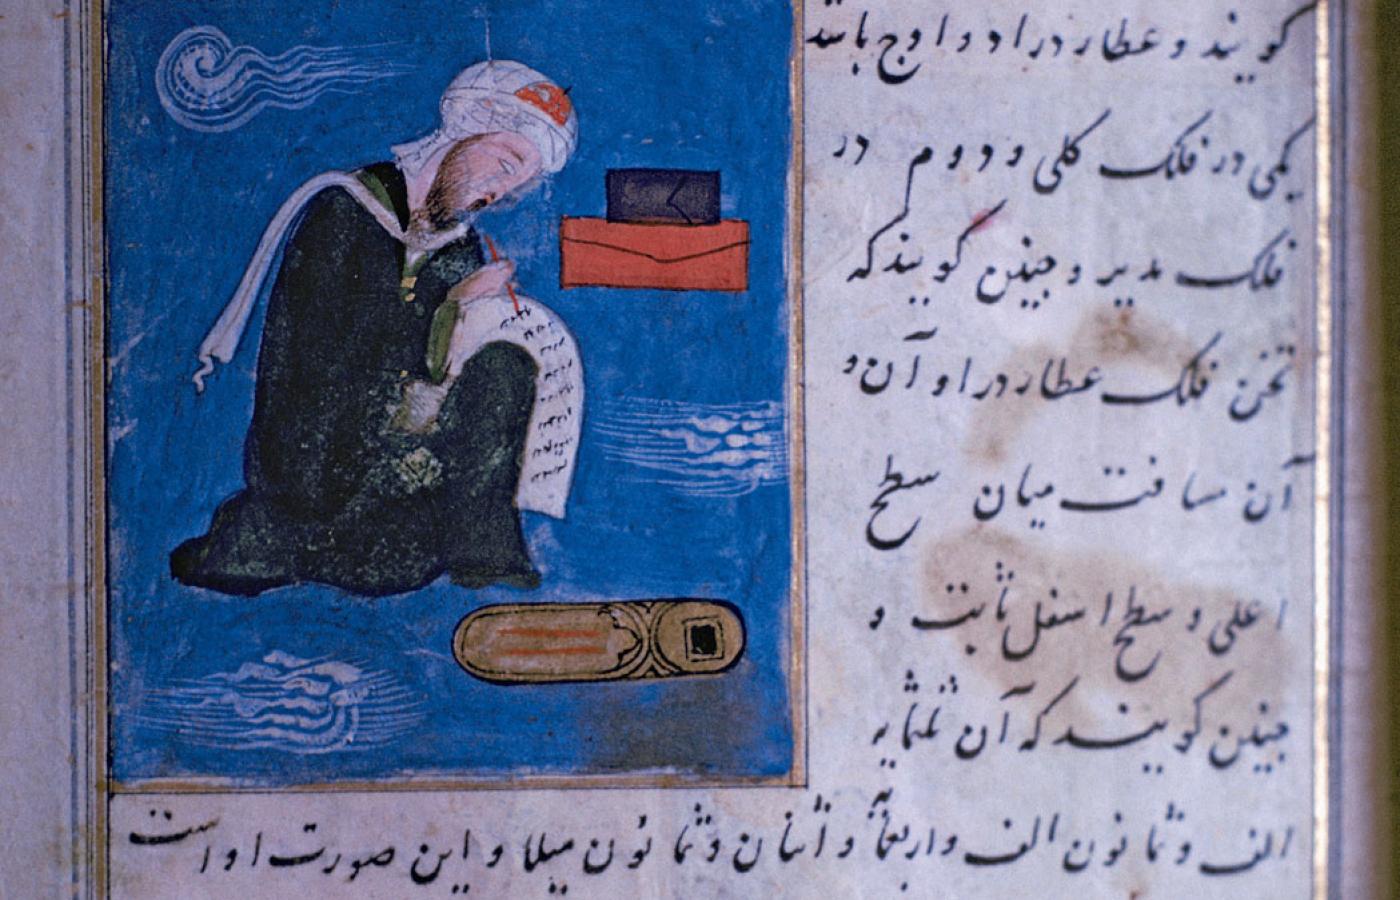 کویند و عطارد را دو اوج باشد
یکی در فلک کلی و دوم در
فلک مدیر و جنین کویند که
ثخن فلک عطارد را و آن و
آن مسافت میان سطح
اعلی و سطح اسفل ثابت و
جنین کویند که آن ثلثمایه
الف و ثمانون الف و اربعمایه و اثنان و ثمانون میلا و این صورت او است